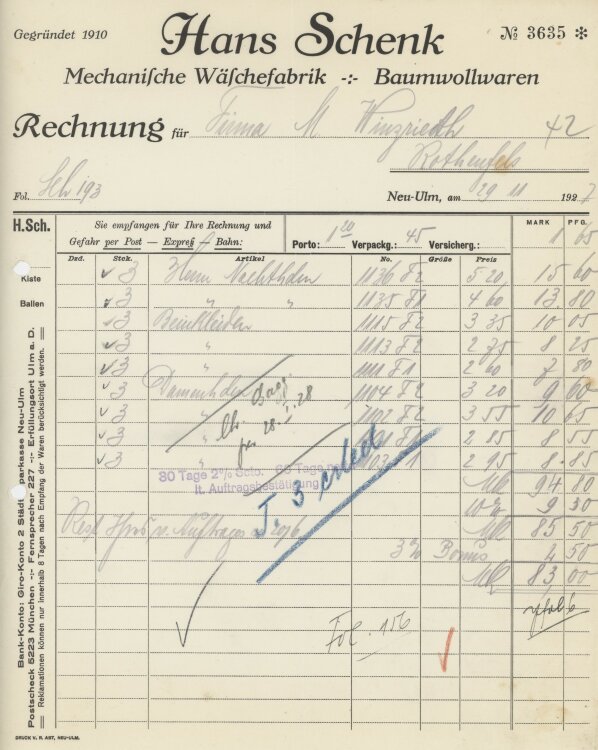 Gegründet 1910
Hans Schenk
№ 3635 ✻
Mechanische Wäschefabrik -:- Baumwollwaren
Rechnung für Firma M. 42
Rothenfels
Fol. 193
Neu-Ulm, am 29 11 1927
H.Sch.
Sie empfangen für Ihre Rechnung und
Gefahr per Post — Expreß — Bahn:
Porto: 1 20 Verpackg.: 45 Versicherg.:
MARK PFG.
1 65
Dzd. Stck. Artikel No. Größe Preis
Kiste
Ballen
3 Herren Nachthemden 1136 F2 5 20 15 60
3 " " 1135 F1 4 60 13 80
3 Beinkleider 1115 F2 3 35 10 05
3 " 1113 F2 2 75 8 25
3 " 1111 F1 2 60 7 80
3 Damenhemden 1104 F2 3 20 9 60
3 " 1102 F2 3 55 10 65
3 " 2 85 8 55
3 " 2 95 8.85
28.I.28
30 Tage 2% Scto.
lt. Auftragsbestätigung
I 3 erled
94 80
10% 9 30
Rest Ihres w. Auftrages
85 50
3% Bonus 4 50
83,00
Fol. 156
Bank-Konto: Giro-Konto 2 Städt. Sparkasse Neu-Ulm
Postscheck 5223 München -:- Fernsprecher 227 -:- Erfüllungsort Ulm a. D.
Reklamationen können nur innerhalb 8 Tagen nach Empfang der Waren berücksichtigt werden.
DRUCK V. R. ABT, NEU-ULM.